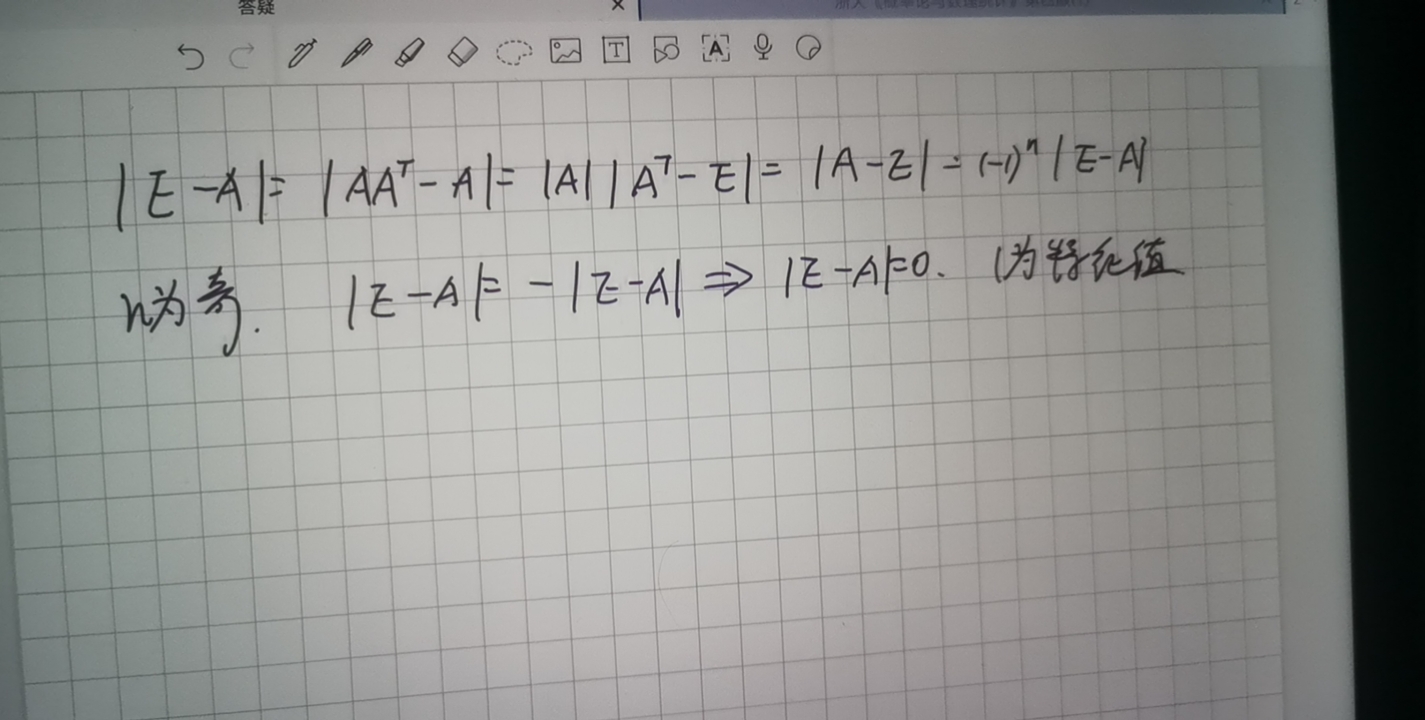 答疑
|E-A|=|AAᵀ-A|=|A||Aᵀ-E|=|A-E|=(-1)ⁿ|E-A|
n为奇. |E-A|=-|E-A|⇒|E-A|=0. 1为特征值